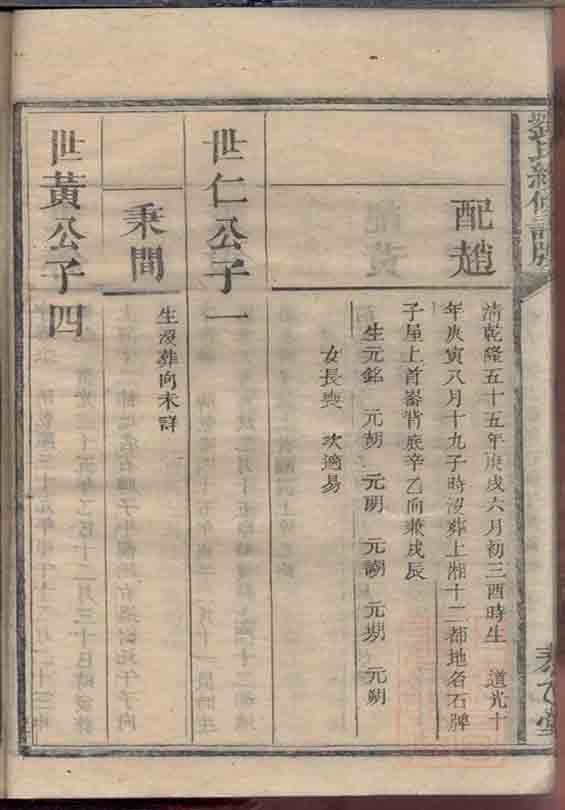 配趙
清乾隆五十五年庚戌六月初三酉時生　道光十
年庚寅八月十九子時沒葬上湘十二都地名石牌
子屋上首嵛背底辛乙向兼戌辰
生元銘　元朝　元明　元　元　元朔
女長喪　次適易
世仁公子一
秉間
生沒葬向未詳
世黃公子四